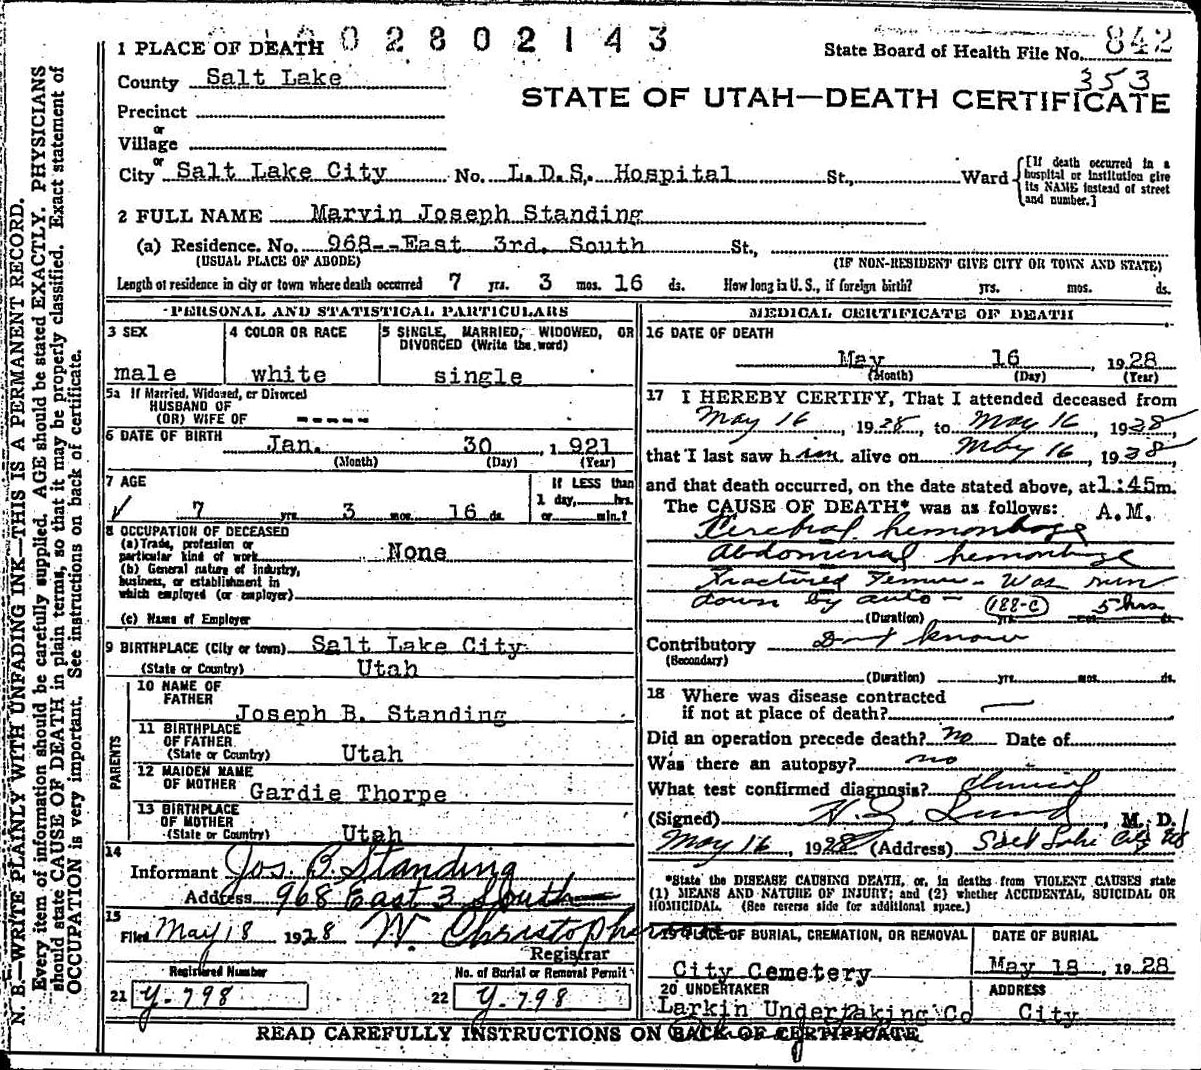 1 PLACE OF DEATH 0 2 8 0 2 1 4 3 State Board of Health File No. 842
County Salt Lake 353
STATE OF UTAH—DEATH CERTIFICATE
Precinct
or
Village
or
City Salt Lake City No. L.D.S. Hospital St., Ward [If death occurred in a hospital or institution give its NAME instead of street and number.]
2 FULL NAME Marvin Joseph Standing
(a) Residence. No. 968--East 3rd. South St.,
(USUAL PLACE OF ABODE) (IF NON-RESIDENT GIVE CITY OR TOWN AND STATE)
Length of residence in city or town where death occurred 7 yrs. 3 mos. 16 ds. How long in U.S., if foreign birth? yrs. mos. ds.
PERSONAL AND STATISTICAL PARTICULARS
3 SEX
male
4 COLOR OR RACE
white
5 SINGLE, MARRIED, WIDOWED, OR
DIVORCED (Write the word)
single
5a If Married, Widowed, or Divorced
HUSBAND OF
(OR) WIFE OF -----
6 DATE OF BIRTH Jan. 30, 1921
(Month) (Day) (Year)
7 AGE
7 yrs. 3 mos. 16 ds.
If LESS than
1 day, hrs.
or min.?
8 OCCUPATION OF DECEASED
(a) Trade, profession or
particular kind of work None
(b) General nature of industry,
business, or establishment in
which employed (or employer)
(c) Name of Employer
9 BIRTHPLACE (City or town) Salt Lake City
(State or Country) Utah
PARENTS
10 NAME OF
FATHER
Joseph B. Standing
11 BIRTHPLACE
OF FATHER
(State or Country) Utah
12 MAIDEN NAME
OF MOTHER Gardie Thorpe
13 BIRTHPLACE
OF MOTHER
(State or Country) Utah
14
Informant Jos. B. Standing
Address 968 East 3 South
15
Filed May 18 1928 W. Christopherson
Registrar
Registered Number
21 Y-798
No. of Burial or Removal Permit
22 Y-798
MEDICAL CERTIFICATE OF DEATH
16 DATE OF DEATH
May 16 1928
(Month) (Day) (Year)
17 I HEREBY CERTIFY, That I attended deceased from
May 16, 1928, to May 16, 1928,
that I last saw him alive on May 16, 1928,
and that death occurred, on the date stated above, at 1:45m.
The CAUSE OF DEATH* was as follows: A.M.
Cerebral hemorrhage
Abdomenal hemorrhage
Fractured Femur - Was run
down by auto - (188-c) 5 hrs
(Duration) ds.
Contributory Don't know
(Secondary)
(Duration) yrs. mos. ds.
18 Where was disease contracted
if not at place of death?
Did an operation precede death? No Date of
Was there an autopsy? no
What test confirmed diagnosis? Clinical
(Signed) H. Z. Lund, M. D.
May 16, 1928 (Address) Salt Lake City
*State the DISEASE CAUSING DEATH, or, in deaths from VIOLENT CAUSES state
(1) MEANS AND NATURE OF INJURY; and (2) whether ACCIDENTAL, SUICIDAL OR
HOMICIDAL. (See reverse side for additional space.)
19 PLACE OF BURIAL, CREMATION, OR REMOVAL
City Cemetery
DATE OF BURIAL
May 18, 1928
20 UNDERTAKER
Larkin Undertaking Co
ADDRESS
City
READ CAREFULLY INSTRUCTIONS ON BACK OF CERTIFICATE
N. B.—WRITE PLAINLY WITH UNFADING INK—THIS IS A PERMANENT RECORD.
Every item of information should be carefully supplied. AGE should be stated EXACTLY. PHYSICIANS
should state CAUSE OF DEATH in plain terms, so that it may be properly classified. Exact statement of
OCCUPATION is very important. See instructions on back of certificate.